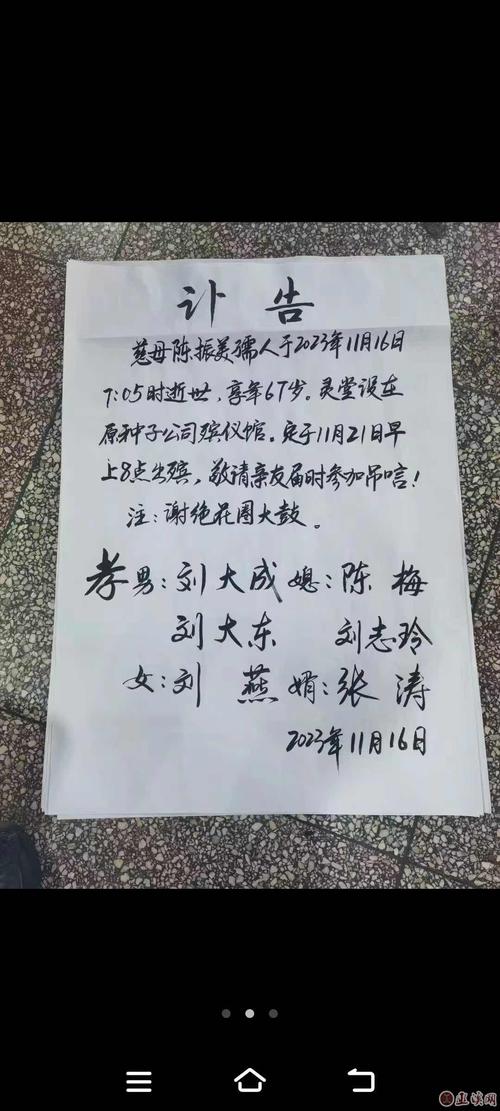 讣告
慈母陈振美孺人于2023年11月16日
7:05时逝世，享年67岁。灵堂设在
原种子公司殡仪馆。定于11月21日早
上8点出殡，敬请亲友届时参加吊唁！
注：谢绝花圈大鼓。
孝男：刘大成 媳：陈梅
刘大东 刘志玲
女：刘燕 婿：张涛
2023年11月16日
巫溪网